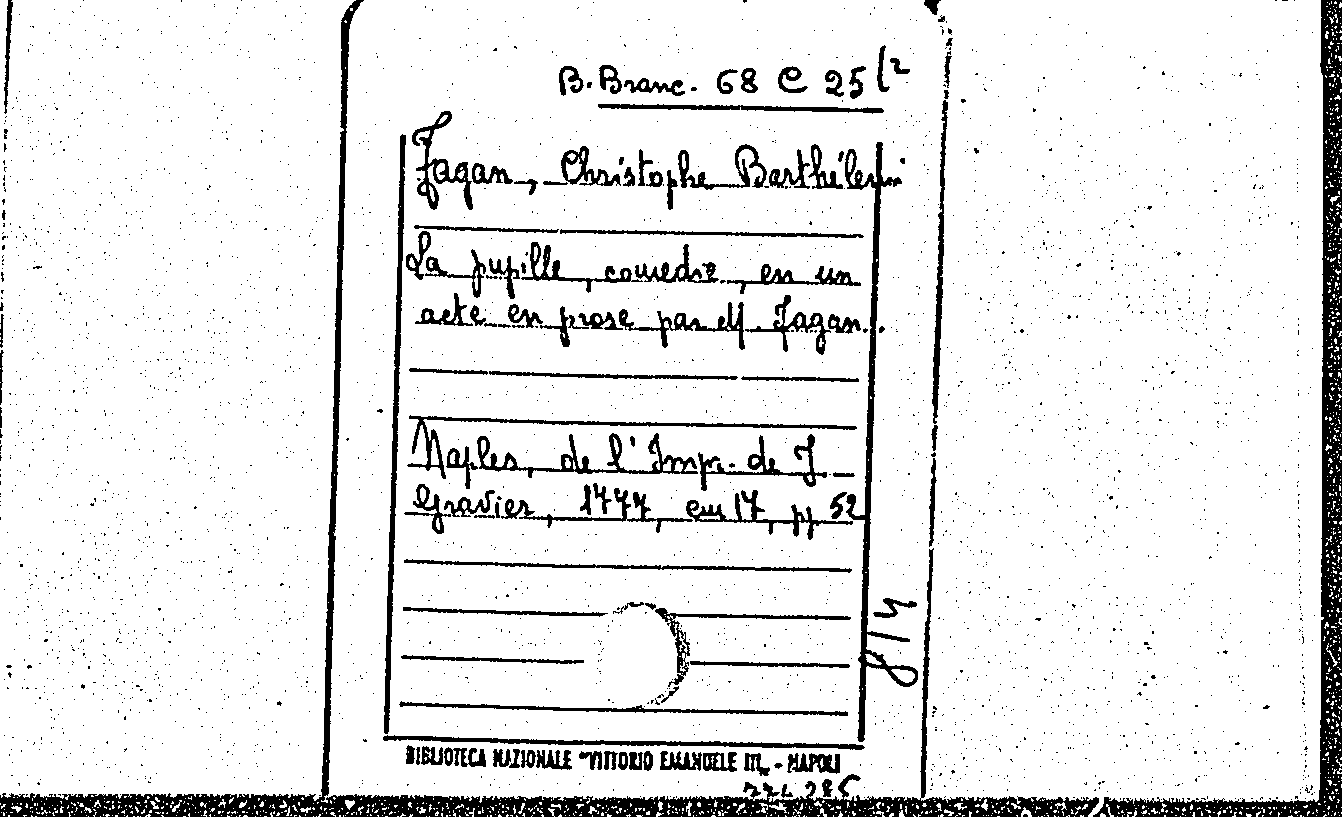 B. Branc. 68 C 25 (2
Fagan, Christophe Barthélemi
La pupille, comedie, en un
acte en prose par M. Fagan..
Naples, de l'Impr. de J.
Gravier, 1777, cm 17, pp 52
814
BIBLIOTECA NAZIONALE "VITTORIO EMANUELE III„ - NAPOLI